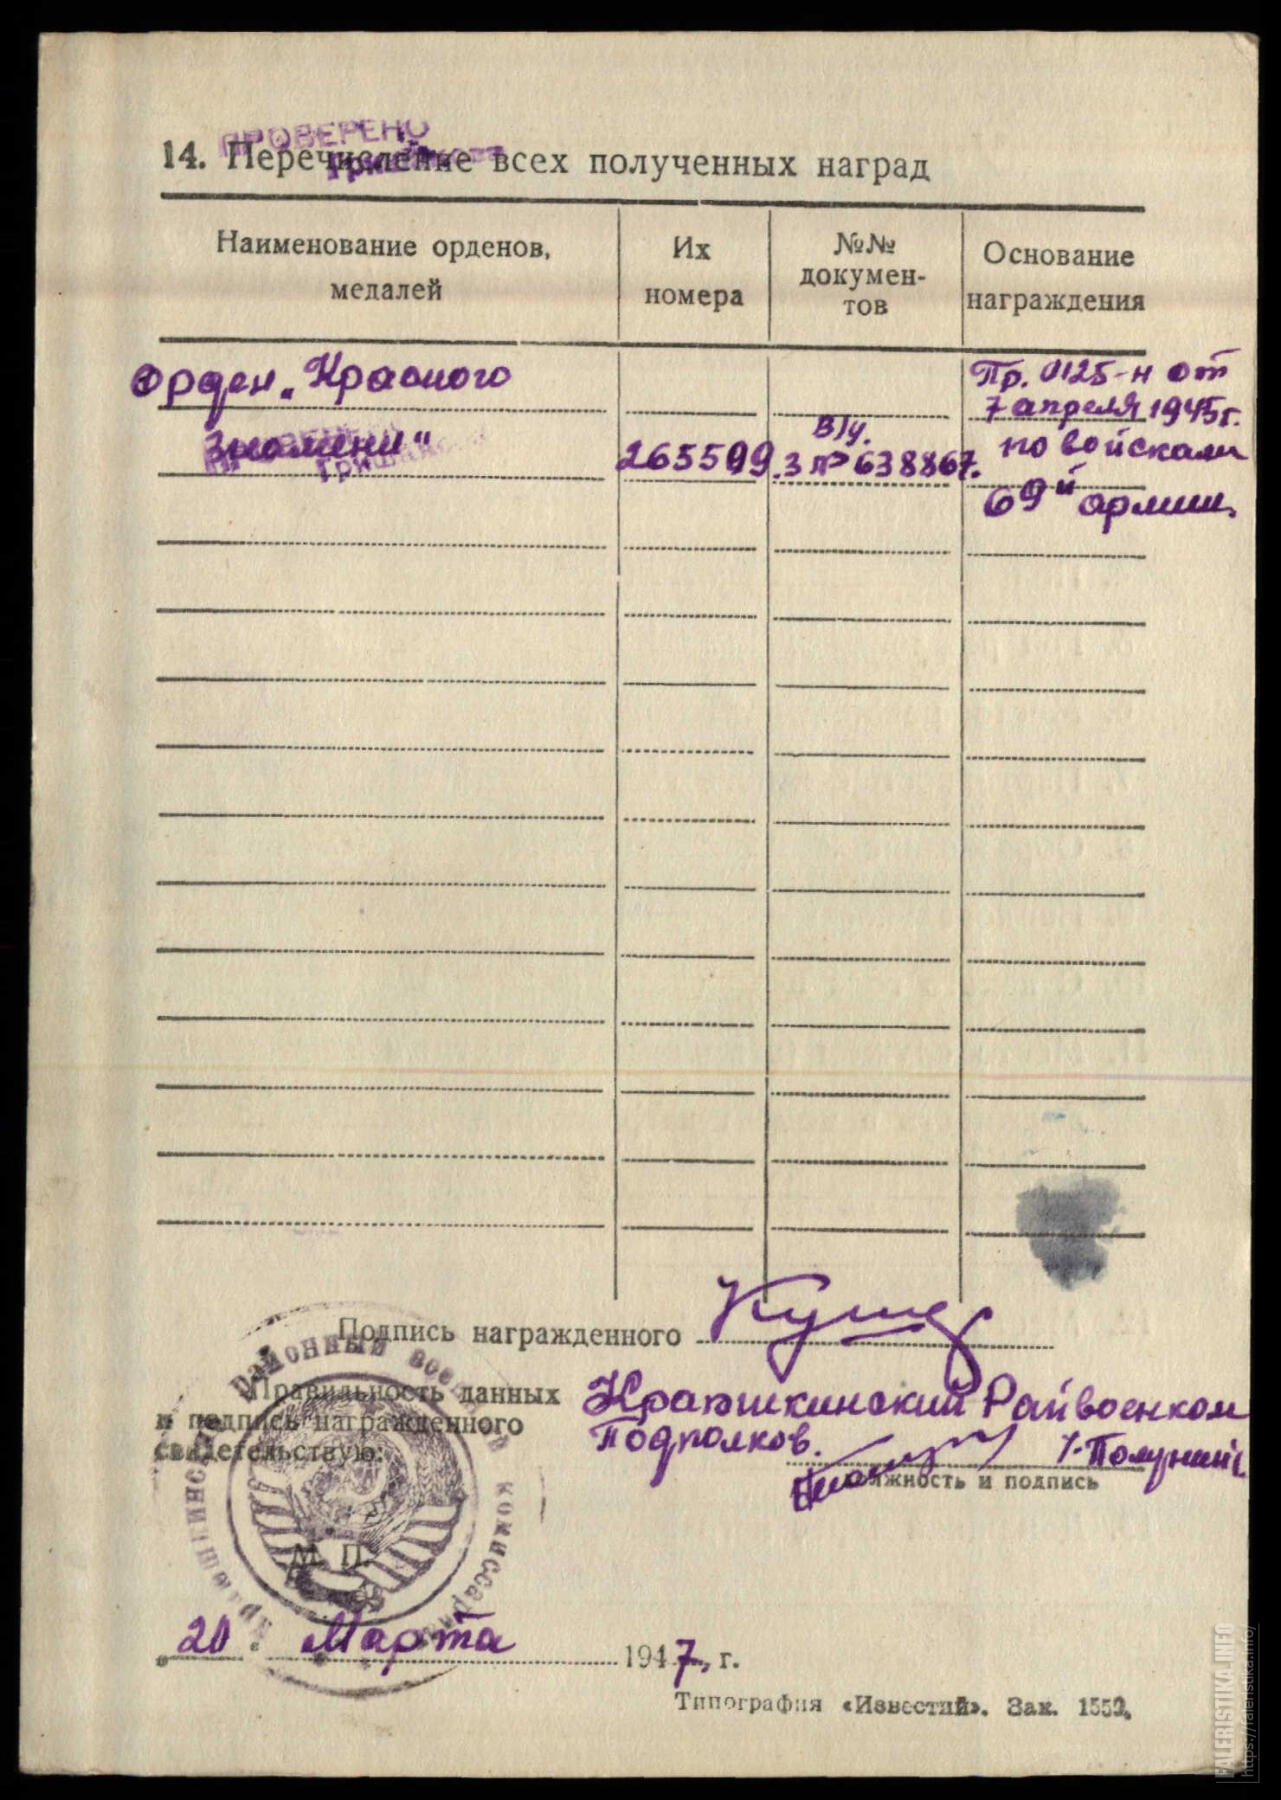 ПРОВЕРЕНО
14. Перечисление всех полученных наград
Наименование орденов, медалей
Их номера
№№ документов
Основание награждения
Орден „Красного
Знамени"
265599.
В/у.
З № 638867.
Пр. 0125-н от
7 апреля 1945 г.
по войскам
69й армии.
Подпись награжденного
Правильность данных
и подпись награжденного
свидетельствую:
районный
Подполков.
должность и подпись
М. П.
20 Марта 1947, г.
Типография «Известий». Зак. 1552.
FALERISTIKA.INFO
https://faleristika.info/